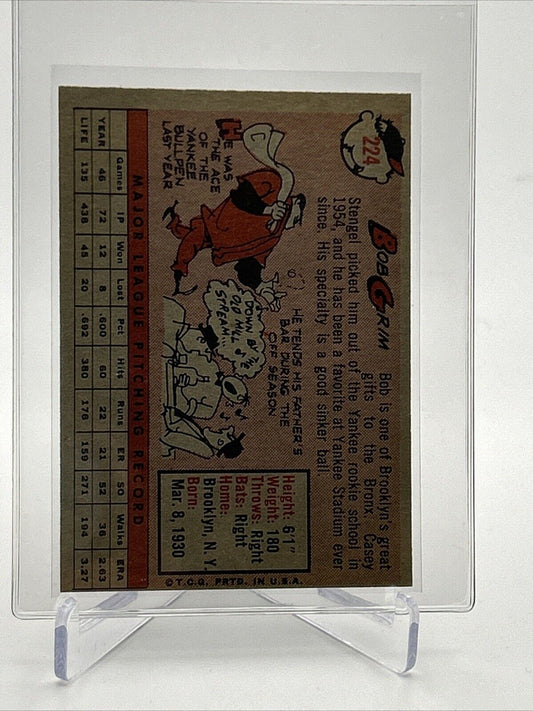 224
BOB GRIM
Bob is one of Brooklyn's great
gifts to the Bronx. Casey
Stengel picked him out of the Yankee rookie school in
1954, and he has been a favorite at Yankee Stadium ever
since. His specialty is a good sinker ball.
HE WAS
THE ACE
OF THE
YANKEE
BULLPEN
LAST YEAR
HE TENDS HIS FATHER'S
BAR DURING THE
OFF SEASON
DOWN BY THE
OLD MILL
STREAM...
Height: 6'1"
Weight: 180
Throws: Right
Bats: Right
Home:
Brooklyn, N. Y.
Born:
Mar. 8, 1930
MAJOR LEAGUE PITCHING RECORD
Games IP Won Lost Pct Hits Runs ER SO Walks ERA
YEAR 46 72 12 8 .600 60 22 21 52 36 2.63
LIFE 135 438 45 20 .692 380 178 159 271 194 3.27
© T.C.G. PRTD. IN U.S.A.